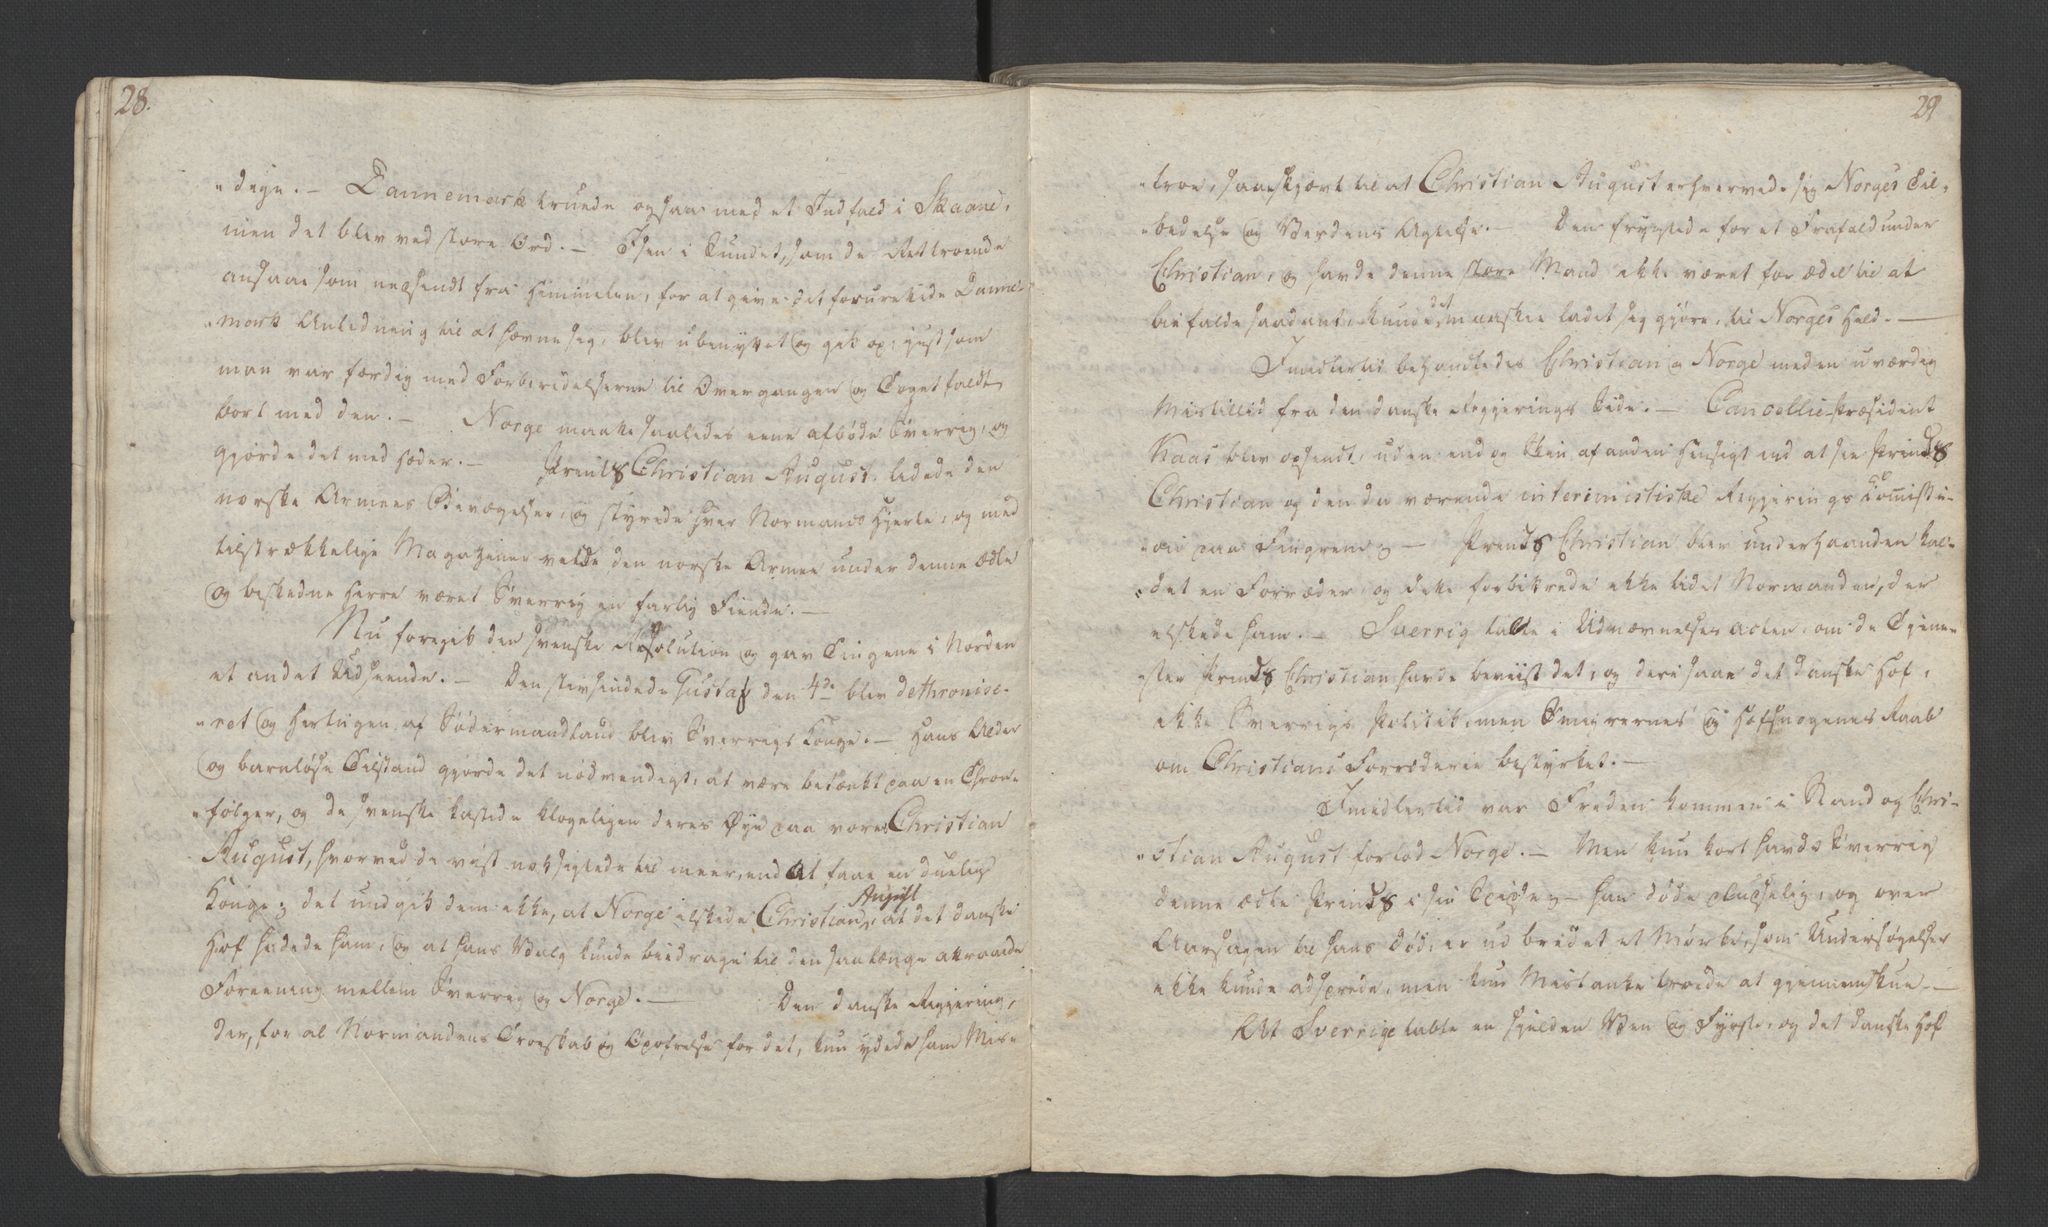 28.
"dige. — Dannemark truede ogsaa med et Indfald i Skaane,
men det blev ved store Ord. — Isen i Sundet, som de Rettroende
ansaae som nedsendt fra Himmelen, for at give det forurettede Danne-
"mark Anledning til at hævne sig, blev ubenyttet og gik op, just som
man var færdig med Forberedelserne til Overgangen og Toget faldt
bort med den. — Norge maatte saaledes ene afbøde Sverrig, og
gjorde det med Hæder. — Prinds Christian August ledede den
norske Armees Bevægelser, og styrede hver Normands Hjerte, og med
tilstrækkelige Magaziner vilde den norske Armee under denne ædle
og beskedne Herre været Sverrig en farlig Fiende. —
Nu foregik den svenske Revolution og gav Tingene i Norden
et andet Udseende. — Den stivsindede Gustaf den 4de blev dethronise-
"ret og Hertugen af Södermandland blev Sverrigs Konge. — Hans Alder
og barnløse Tilstand gjorde det nødvendigt, at være betænkt paa en Thron-
"følger, og de Svenske kastede klogeligen deres Øyne paa vores Christian
August, hvorved de vist nok sigtede til meer, end at faae en duelig
Konge; det undgik dem ikke, at Norge elskede Christian August, at det danske
Hof hadede ham, og at hans Valg kunde bidrage til den saa længe attraaede
Foreening mellem Sverrig og Norge. — Den danske Regjering,
der, for al Normandens Troeskab og Opofrelse for det, kun ydede ham Mis-
29
"troe, saae skjævt til at Christian August erhvervede sig Norges Til-
"bedelse og Verdens Agtelse. — Den frygtede for et Frafald under
Christian, og havde denne store Mand ikke været for ædel til at
bifalde saadant, kunde det maaskee ladet sig gjøre, til Norges Held. —
Imidlertid behandledes Christian og Norge med en uværdig
Mistillid fra den danske Regjerings Side. — Cancellie-Præsident
Kaas blev opsendt, uden end og Skin af anden Hensigt end at see Prinds
Christian og den da værende interimistiske Regjerings Commissi-
"on paa Fingrene. — Prinds Christian blev underhaanden kal-
"det en Forræder, og dette forbittrede ikke lidet Normanden, der
elskede ham. — Sverrig talte i Udnævnelses acten, om de Tjene-
"ster Prinds Christian havde beviist det, og deri saae det danske Hof,
ikke Sverrigs Politik, men Smigrernes og Hofsnogenes Raab
om Christians Forræderie bestyrket. —
Imedlertid var Freden kommen i Stand og Chri-
"stian August forlod Norge. — Men kun kort havde Sverrig
denne ædle Prinds i sin Spidse, — han døde pludselig, og over
Aarsagen til hans Død, er udbredet et Mørke, som Undersøgelser
ikke kunde adsprede, men kun Mistanke troede at gjennemskue. —
At Sverrige tabte en sjelden Ven og Fyrste, og det danske Hof